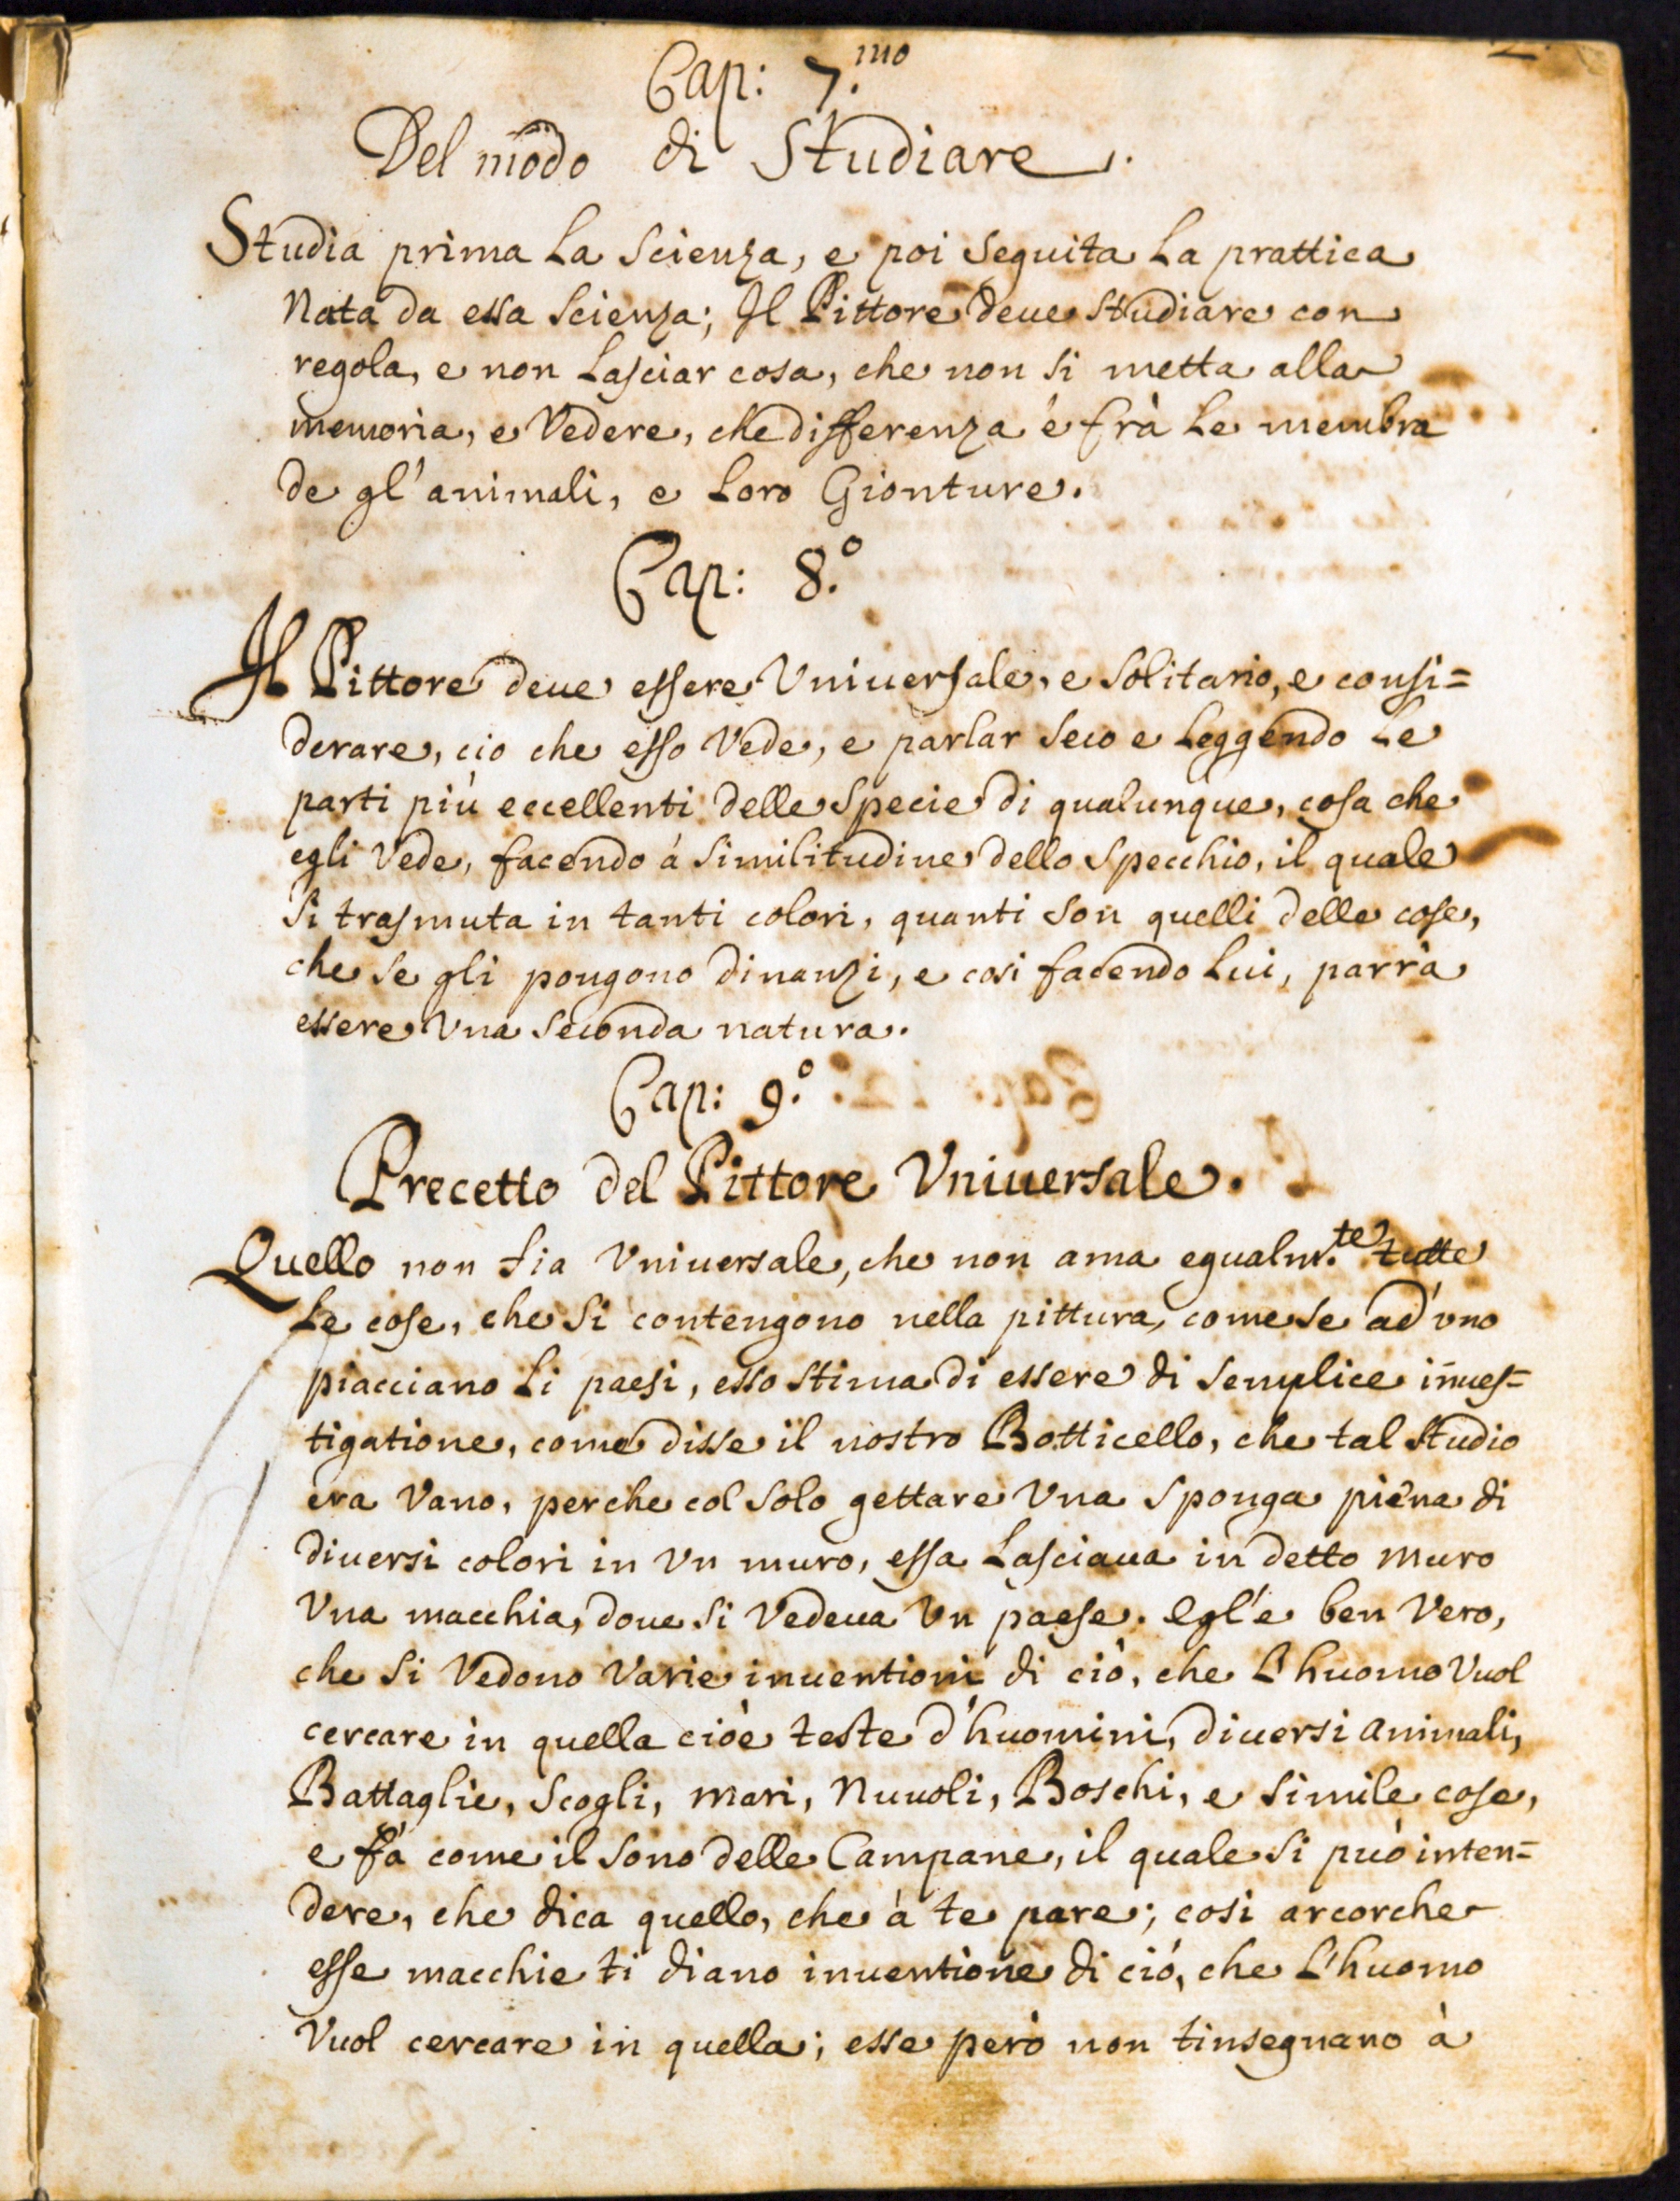 2.
Cap: 7.mo
Del modo di Studiare.
Studia prima La Scienza, e poi Seguita La prattica
Nata da essa Scienza; Il Pittore deue studiare con
regola, e non Lasciar cosa, che non si metta alla
memoria, e Vedere, che differenza é frà Le membra
de gl'animali, e Loro Gionture.
Cap: 8.o
Il Pittore deue essere Vniuersale, e Solitario, e consi=
derare, cio che esso Vede, e parlar Seco e Leggendo Le
parti più eccellenti delle Specie di qualunque, cosa che
egli Vede, facendo á Similitudine dello Specchio, il quale
Si trasmuta in tanti colori, quanti son quelli delle cose,
che se gli pongono dinanzi, e cosi facendo Lui, parrà
essere Vna Seconda natura.
Cap: 9.o
Precetto del Pittore Vniuersale.
Quello non sia Vniuersale, che non ama egualm.te tutte
Le cose, che Si contengono nella pittura, come se ad'uno
piacciano Li paesi, esso stima di essere di Semplice inues=
tigatione, come disse il nostro Botticello, che tal studio
era Vano, perche col Solo gettare Vna Sponga piena di
diuersi colori in Vn muro, essa Lasciaua in detto muro
Vna macchia, doue si Vedeua Vn paese. Egl'e ben Vero,
che Si Vedono Varie inuentioni di ciò, che L'huomo Vuol
cercare in quella cioè teste d'huomini, diuersi animali,
Battaglie, Scogli, mari, Nuuoli, Boschi, e Simile cose,
e fà come il Sono delle Campane, il quale Si può inten=
dere, che dica quello, che à te pare; cosi arcorche
esse macchie ti diano inuentione di ció, che L'huomo
Vuol cercare in quella; esse però non tinsegnano à